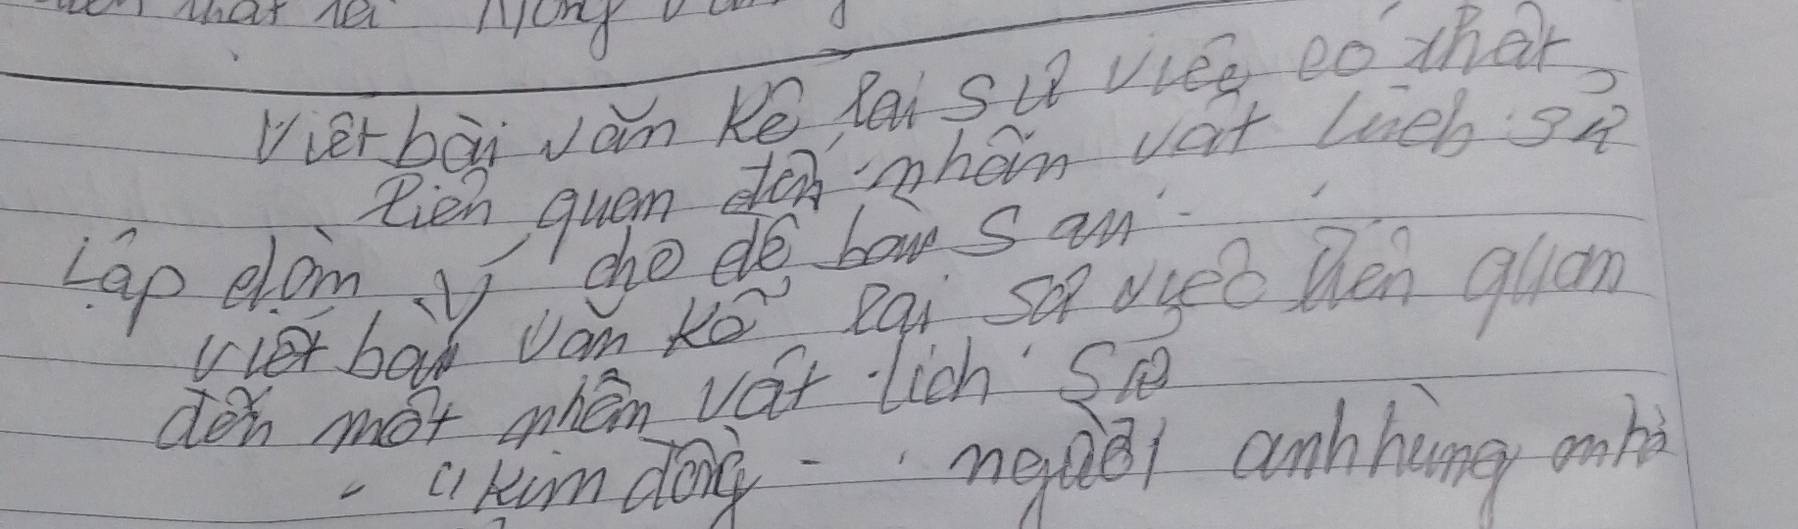 thật là
Viết bài văn kể lại sự việc có thật
liên quan đến nhân vật lịch sử
Lập dàn ý cho đề bài sau:
viết bài văn kể lại sự việc liên quan
đến một nhân vật lịch sử
"Kim đồng - người anh hùng nhỏ